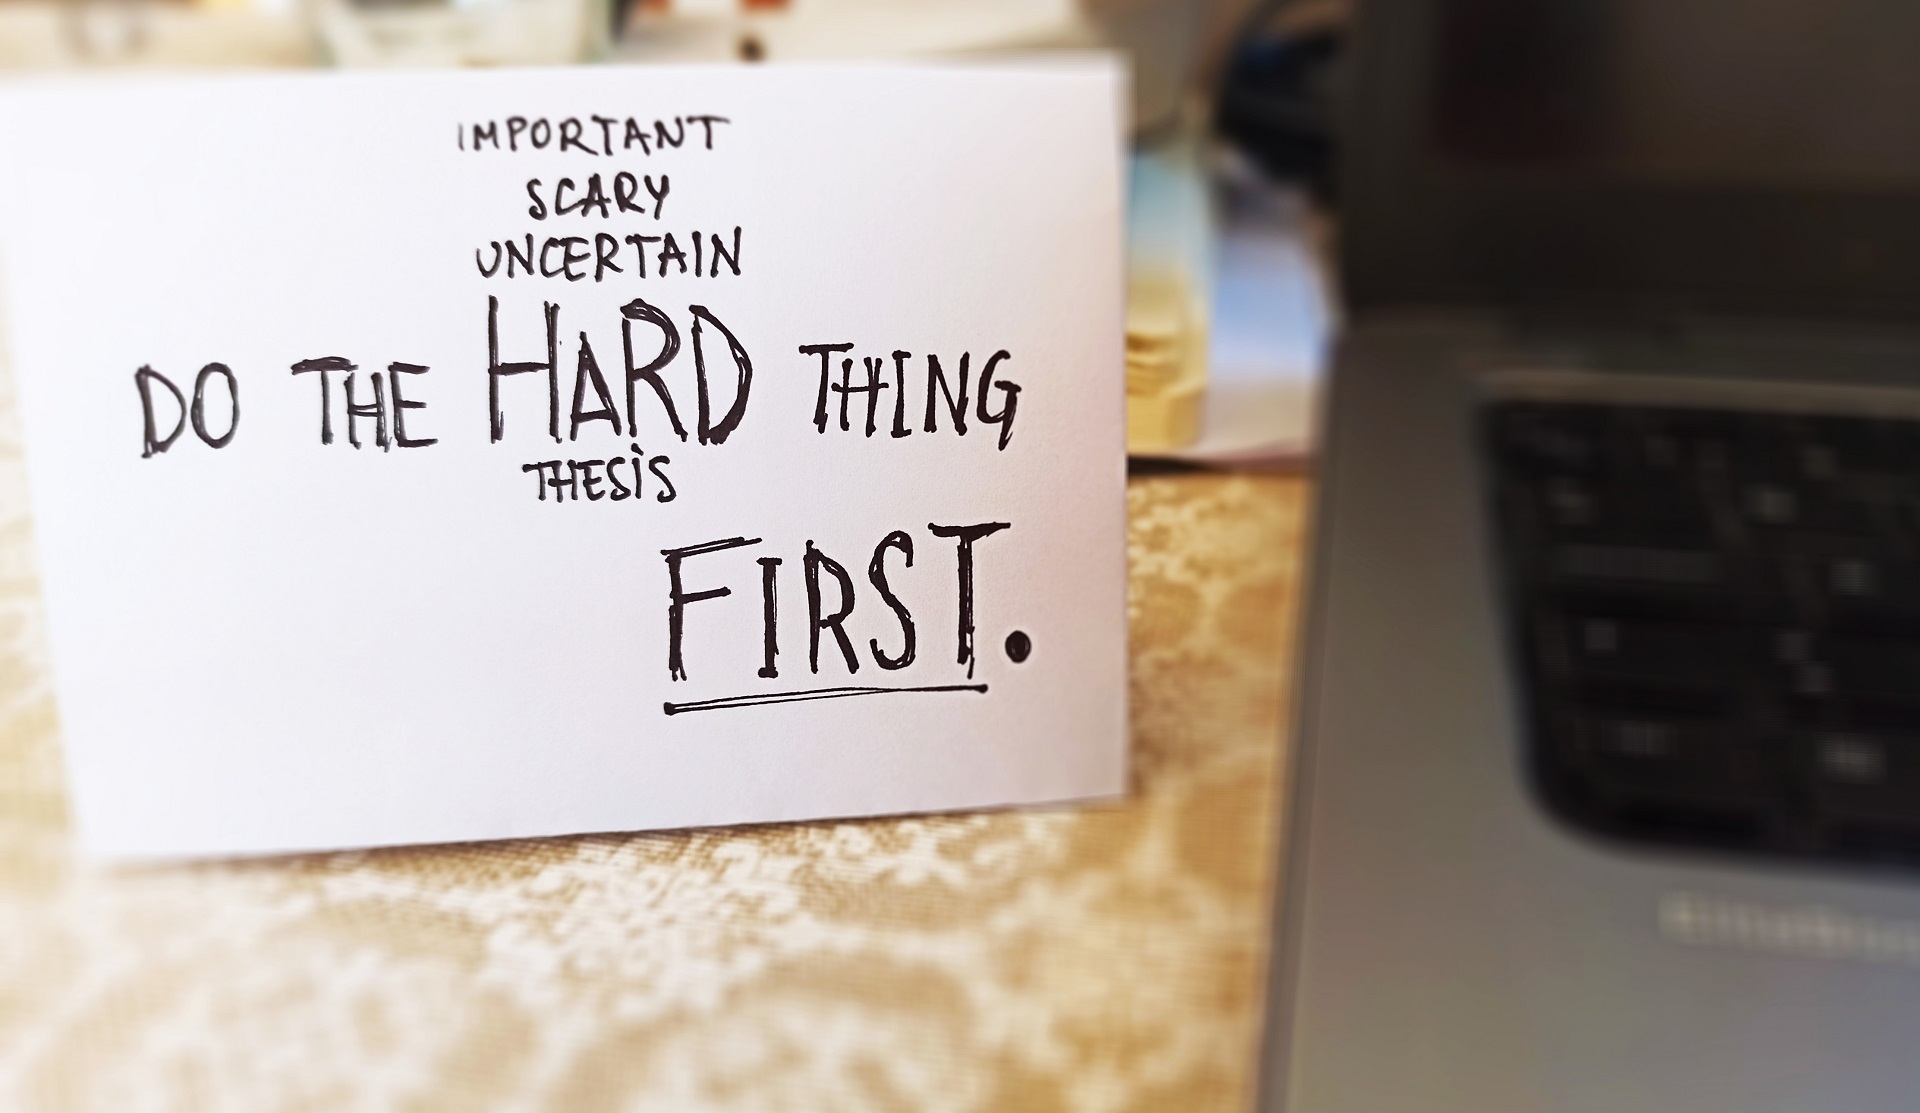 IMPORTANT
SCARY
UNCERTAIN
DO THE HARD THING
THESIS
FIRST.